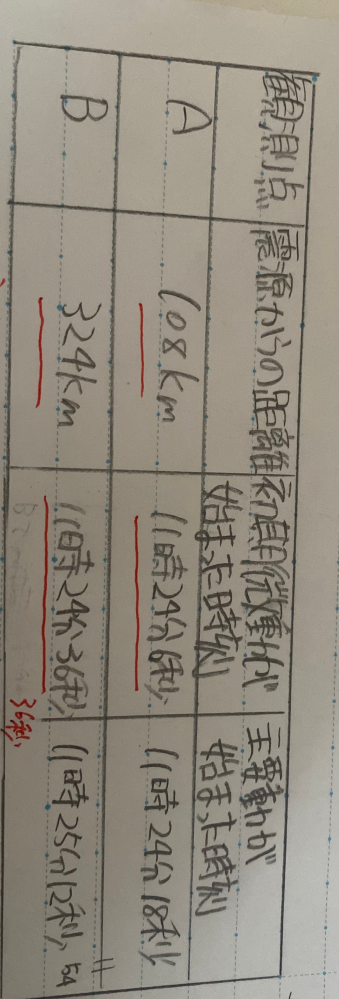 観測点
震源からの距離
初期微動が
始まった時刻
主要動が
始まった時刻
A
108km
11時24分6秒
11時24分18秒
B
324km
11時24分36秒
11時25分12秒
36秒